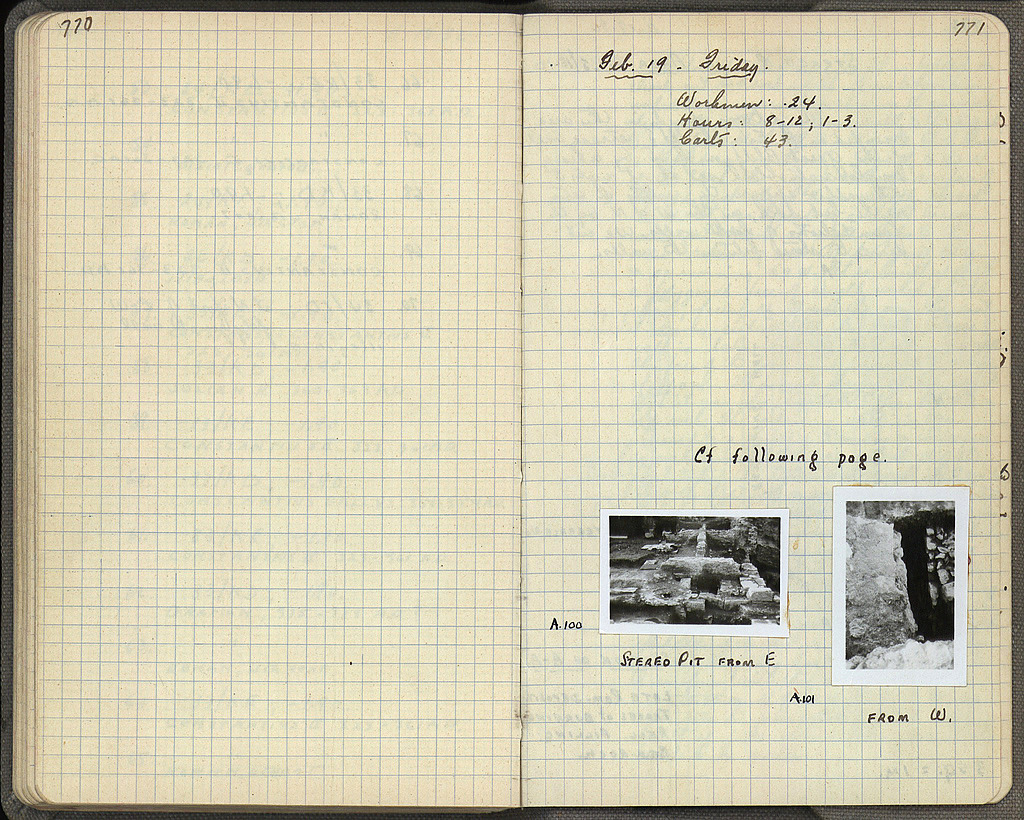 770
771
Feb. 19 - Friday.
Workmen: 24.
Hours: 8-12; 1-3.
Carts: 43.
Cf following page.
A.100
STEREO PIT FROM E
A.101
FROM W.